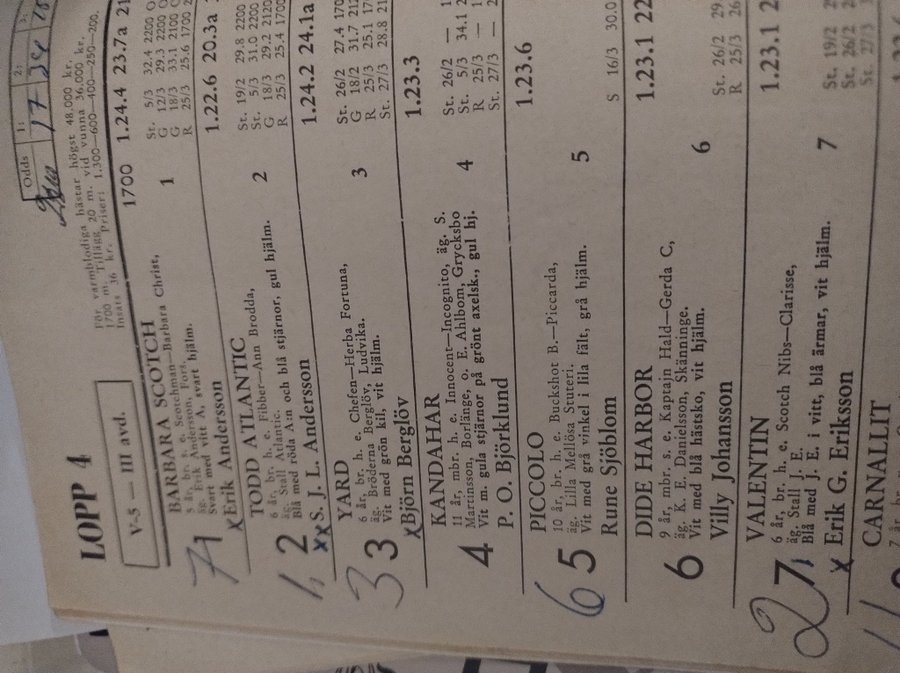 LOPP 4
V-5 — III avd.
Odds
1:
2:
17
För varmblodiga hästar högst 48.000 kr.
1700 m. Tillägg 20 m. vid vunna 36.000 kr.
Insats 36 kr. Priser: 1.300—600—400—250—200.
1700
BARBARA SCOTCH
1.24.4 23.7a
5 år, br. s. e. Scotchman—Barbara Christ,
äg. Erik Andersson, Fors.
Svart med vitt A, svart hjälm.
x Erik Andersson
1
St. 5/3 32.4 2200
G 12/3 29.3 2200
G 18/3 33.1 2100
R 25/3 25.6 1700
TODD ATLANTIC
1.22.6 20.3a
6 år, br. h. e. Fibber—Ann Brodda,
äg. Stall Atlantic.
Blå med röda A:n och blå stjärnor, gul hjälm.
2
xx S. J. L. Andersson
2
St. 19/2 29.8 2200
St. 5/3 31.0 2200
G 18/3 29.2 2120
R 25/3 25.4 1700
YARD
1.24.2 24.1a
6 år, br. h. e. Chefen—Herba Fortuna,
äg. Bröderna Berglöv, Ludvika.
Vit med grön kil, vit hjälm.
3 3
x Björn Berglöv
3
St. 26/2 27.4
G 18/2 31.7
R 25/3 25.1
St. 27/3 28.8
KANDAHAR
1.23.3
11 år, mbr. h. e. Innocent—Incognito, äg. S.
Martinsson, Borlänge, o. E. Ahlbom, Grycksbo
Vit m. gula stjärnor på grönt axelsk., gul hj.
4
P. O. Björklund
4
St. 26/2 —
St. 5/3 34.1
R 25/3 —
St. 27/3 —
PICCOLO
1.23.6
10 år, br. h. e. Buckshot B.—Piccarda,
äg. Lilla Mellösa Stuteri.
Vit med grå vinkel i lila fält, grå hjälm.
6 5
Rune Sjöblom
5
S 16/3 30.0
DIDE HARBOR
1.23.1 22
9 år, mbr. s. e. Kaptajn Hald—Gerda C,
äg. K. E. Danielsson, Skänninge.
Vit med blå hästsko, vit hjälm.
6
Willy Johansson
6
St. 26/2 29.
R 25/3 26
VALENTIN
1.23.1
6 år, br. h. e. Scotch Nibs—Clarisse,
äg. Stall J. E.
Blå med J. E. i vitt, blå ärmar, vit hjälm.
2 7
x Erik G. Eriksson
7
St. 19/2
St. 26/2
St. 27/3
CARNALLIT
7 år,